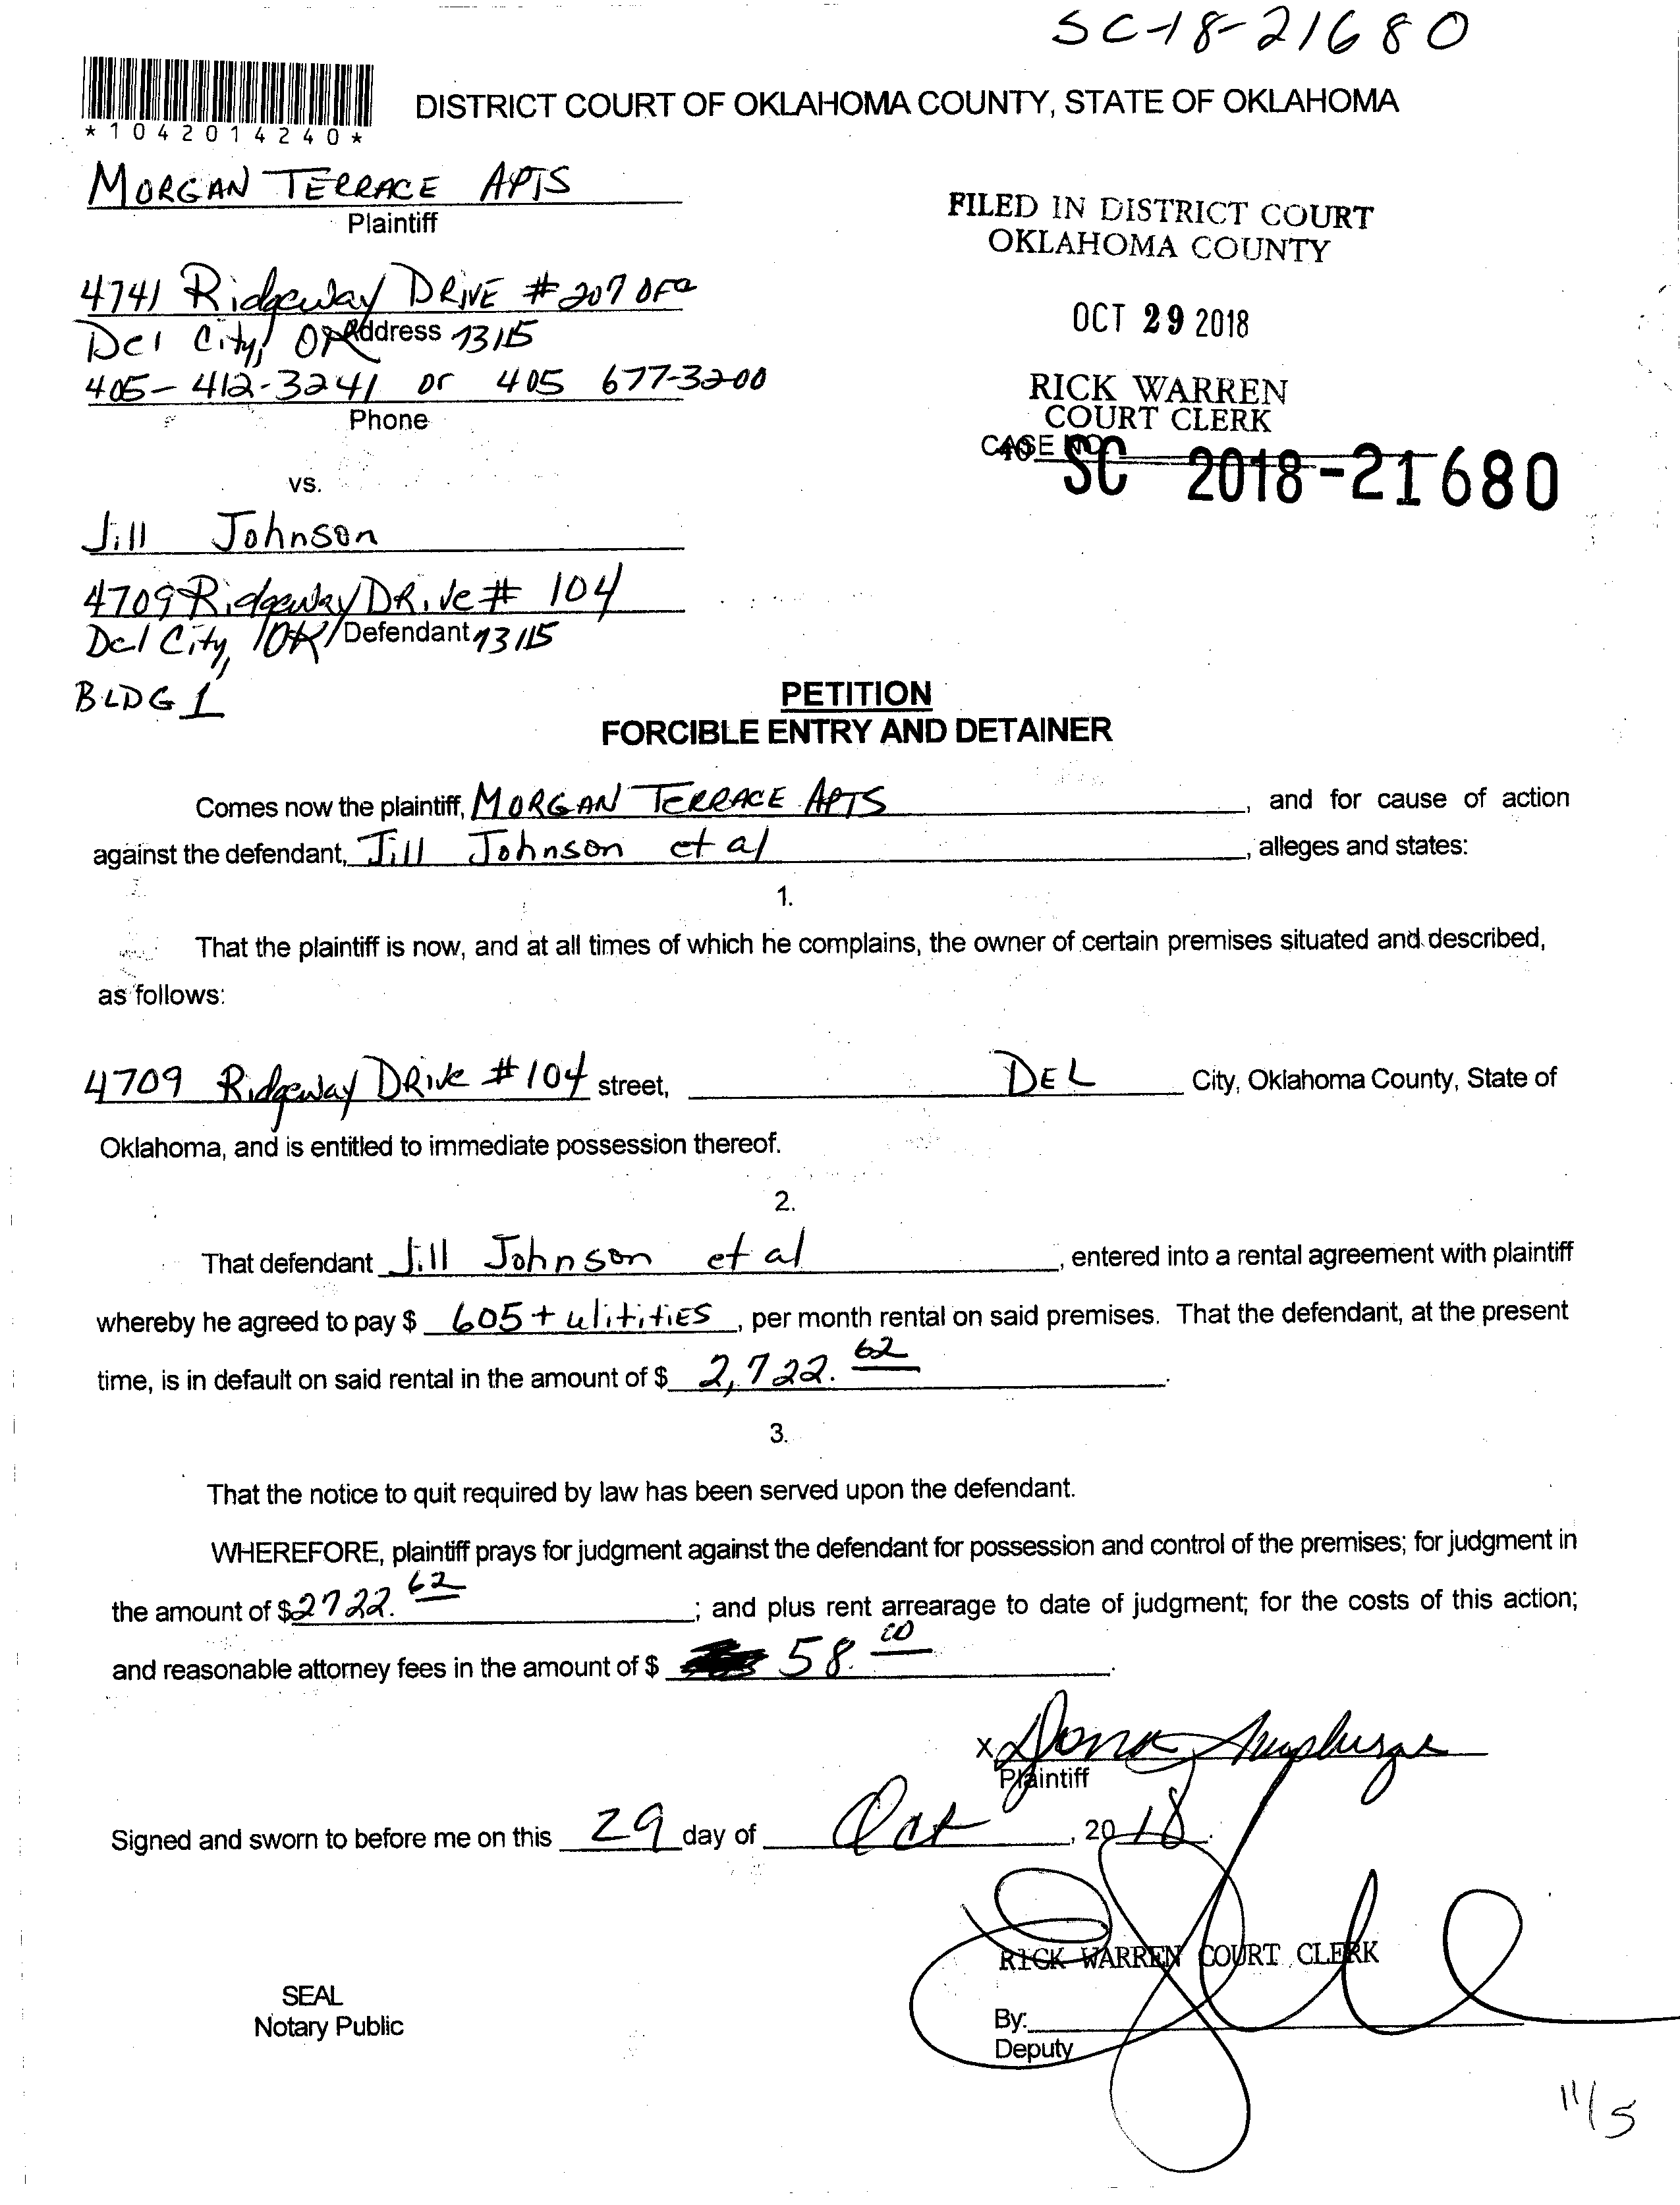 SC-18-21680
*1042014240*
DISTRICT COURT OF OKLAHOMA COUNTY, STATE OF OKLAHOMA
MORGAN TERRACE APTS
Plaintiff
FILED IN DISTRICT COURT
OKLAHOMA COUNTY
4741 Ridgeway DRIVE #207 OFC
Del City, OK Address 73115
OCT 29 2018
405-412-3241 or 405 677-3200
Phone
RICK WARREN
COURT CLERK
CASE NO.
46
SC 2018-21680
vs.
Jill Johnson
4709 Ridgeway DRive # 104
Del City, OK Defendant 73115
BLDG 1
PETITION
FORCIBLE ENTRY AND DETAINER
Comes now the plaintiff, MORGAN TERRACE APTS, and for cause of action
against the defendant, Jill Johnson et al, alleges and states:
1.
That the plaintiff is now, and at all times of which he complains, the owner of certain premises situated and described,
as follows:
4709 Ridgeway DRive #104 street, DEL City, Oklahoma County, State of
Oklahoma, and is entitled to immediate possession thereof.
2.
That defendant Jill Johnson et al, entered into a rental agreement with plaintiff
whereby he agreed to pay $ 605 + ulitities, per month rental on said premises. That the defendant, at the present
time, is in default on said rental in the amount of $ 2,722.62.
3.
That the notice to quit required by law has been served upon the defendant.
WHEREFORE, plaintiff prays for judgment against the defendant for possession and control of the premises; for judgment in
the amount of $2722.62; and plus rent arrearage to date of judgment; for the costs of this action;
and reasonable attorney fees in the amount of $ 58.00.
x
Plaintiff
Signed and sworn to before me on this 29 day of Oct, 2018.
RICK WARREN COURT CLERK
SEAL
Notary Public
By:
Deputy
11/5